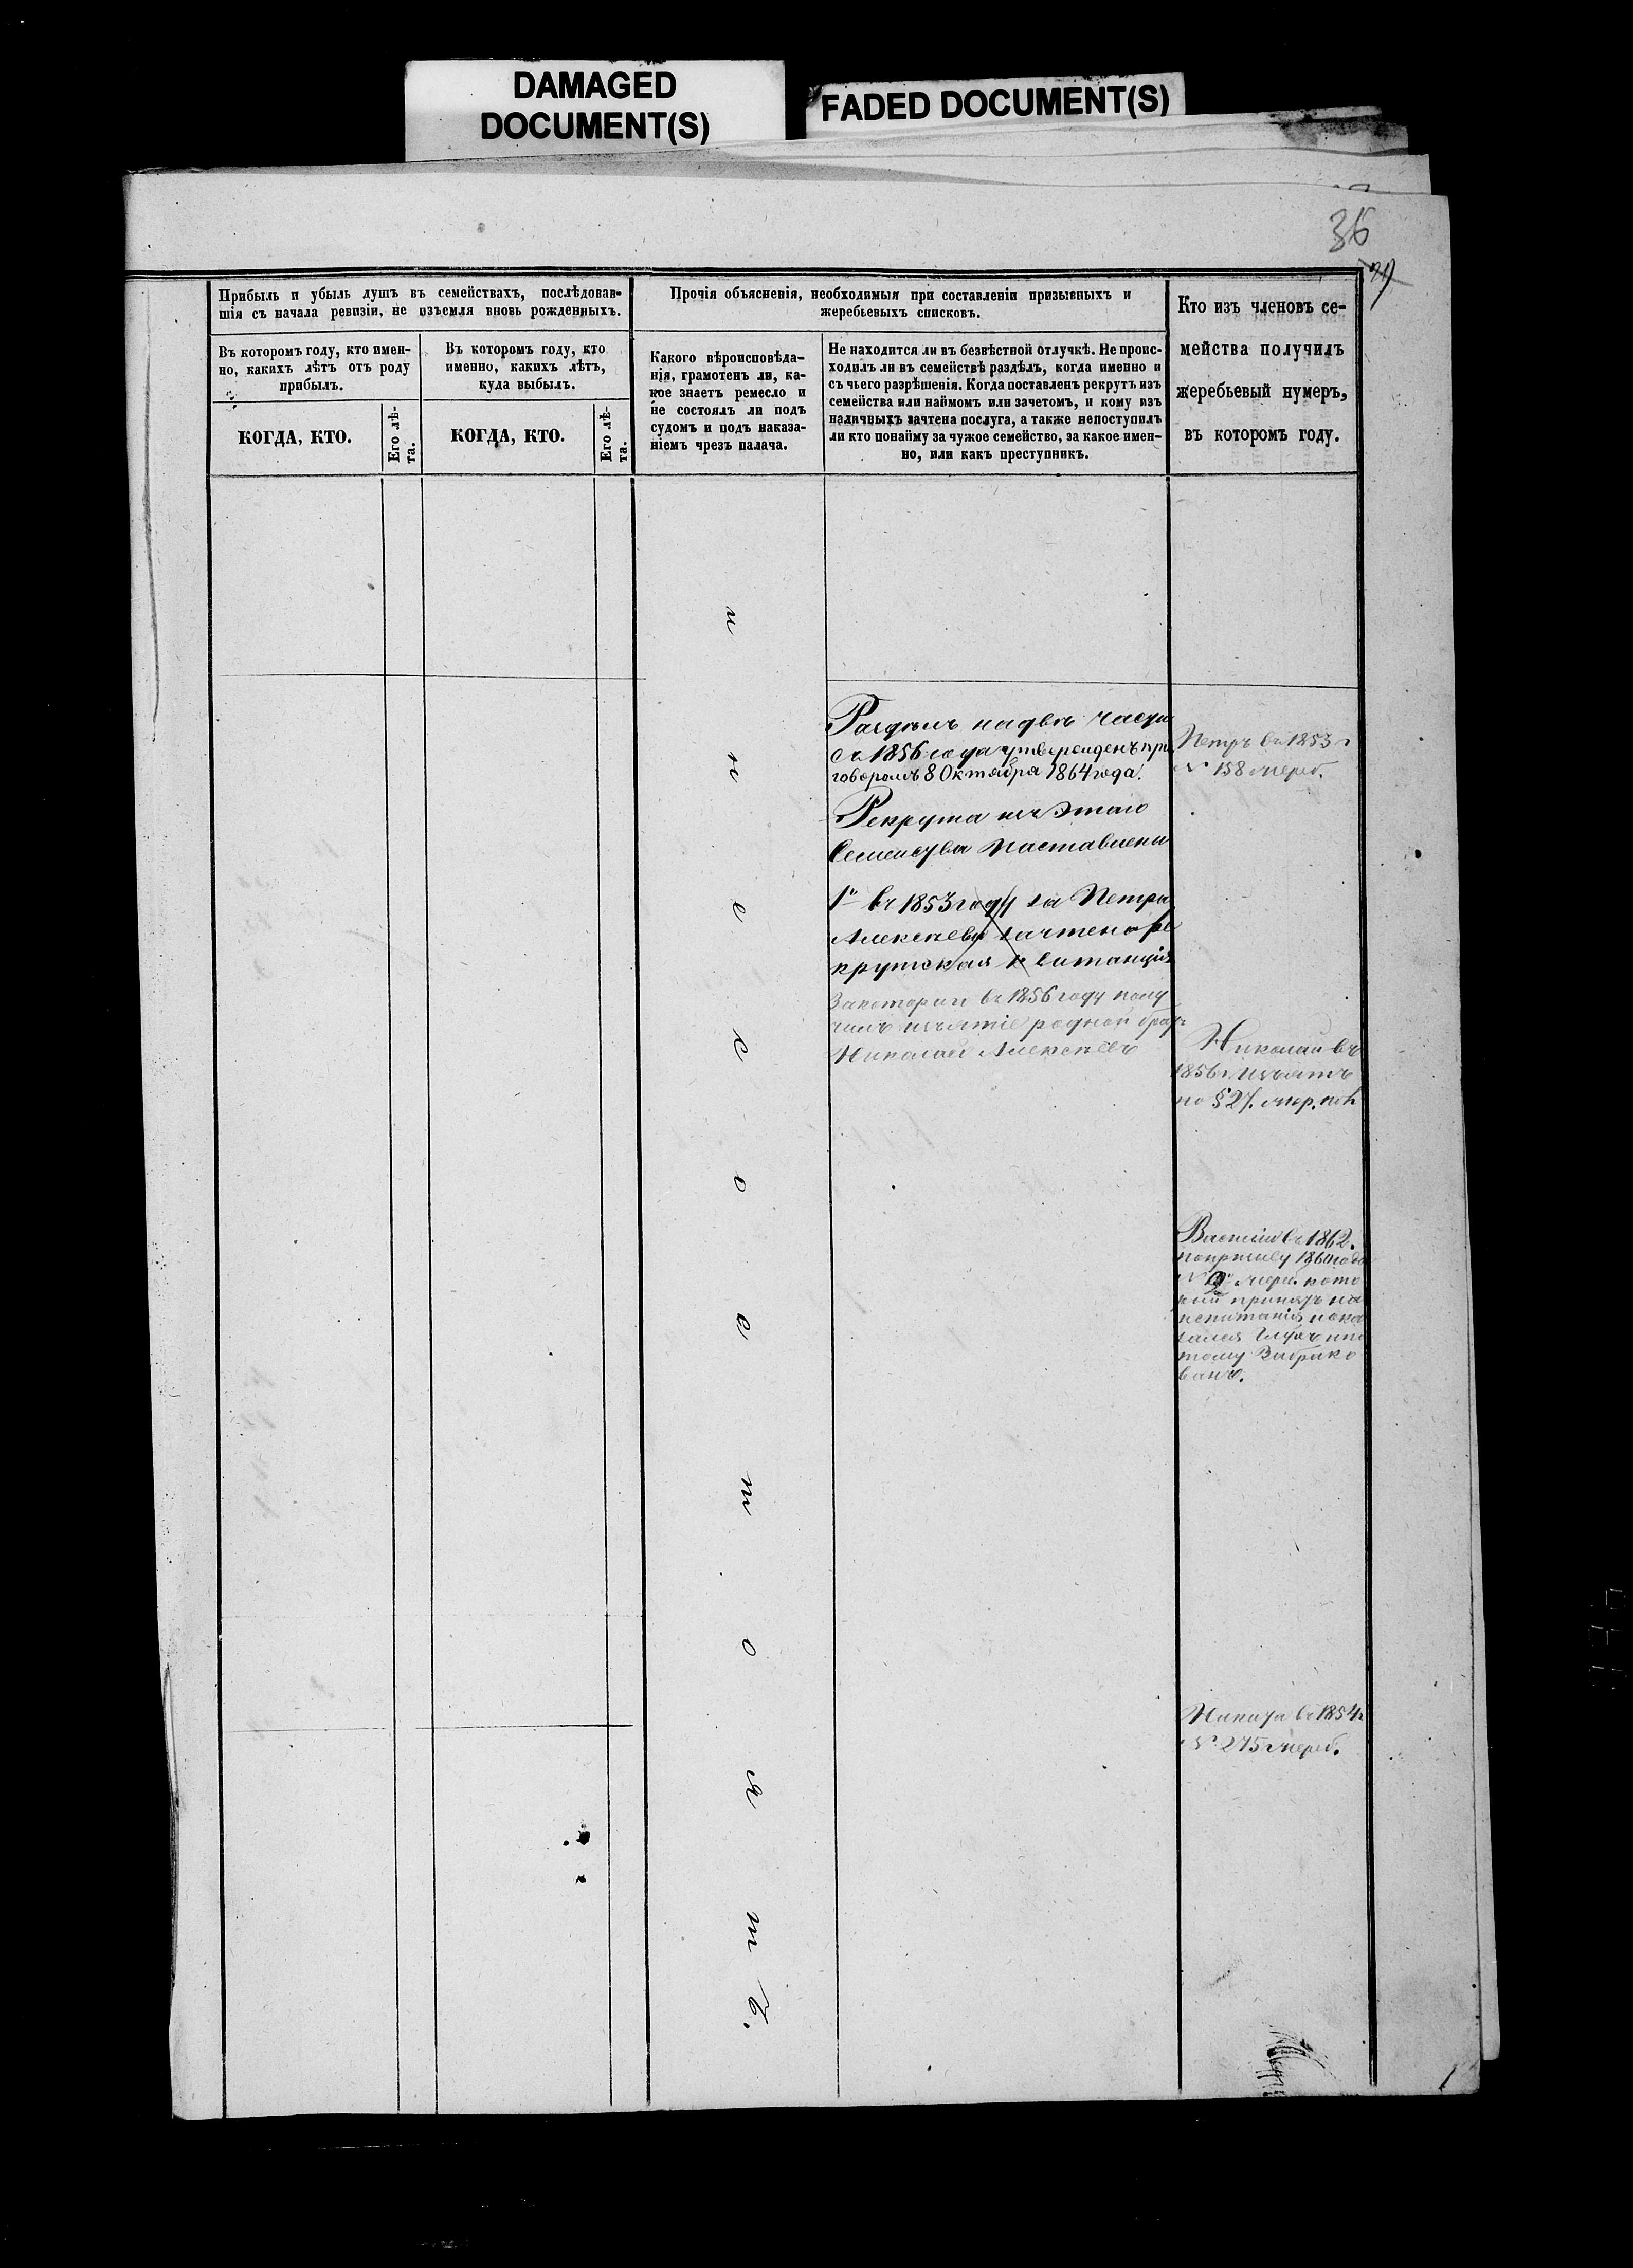 DAMAGED
DOCUMENT(S)
FADED DOCUMENT(S)
36
Прибыль и убыль душъ въ семействахъ, послѣдовав-
шія съ начала ревизіи, не изъемля вновь рожденныхъ.
Прочія объясненія, необходимыя при составленіи призывныхъ и
жеребьевыхъ списковъ.
Кто изъ членовъ се-
мейства получилъ
жеребьевый нумеръ,
въ которомъ году.
Въ которомъ году, кто имен-
но, какихъ лѣтъ отъ роду
прибылъ.
Въ которомъ году, кто
именно, какихъ лѣтъ,
куда выбылъ.
Какого вѣроисповѣда-
нія, грамотенъ ли, ка-
кое знаетъ ремесло и
не состоялъ ли подъ
судомъ и подъ наказа-
ніемъ чрезъ палача.
Не находится ли въ безвѣстной отлучкѣ. Не проис-
ходилъ ли въ семействѣ раздѣлъ, когда именно и
съ чьего разрѣшенія. Когда поставленъ рекрутъ изъ
семейства или наймомъ или зачетомъ, и кому изъ
наличныхъ зачтена послуга, а также непоступилъ
ли кто понайму за чужое семейство, за какое имен-
но, или какъ преступникъ.
КОГДА, КТО.
Его лѣ-
та.
КОГДА, КТО.
Его лѣ-
та.
и н е с о с т о я т ъ.
Раздѣлъ надвѣ части
съ 1856 года утвержденъ при
говоромъ 8 Октября 1864 года.
Рекрута изъ этаго
Семейства Поставлены
1й въ 1853 году за Петра
Алексѣева зачтена ре
крутская квитанція
Закоторый въ 1856 году полу
чилъ изъятіе родной братъ
Николай Алексѣевъ
Петръ въ 1853 г
№ 158 жереб.
Николай въ
1856 г. Изъятъ
по § 27. жер. пол
Василій въ 1862.
попризыву 1860 года
№ 2 жереб. кото
рый принятъ на
испытанія и ока
зался Глухъ ипо
тому Забрако
ванъ.
Никита въ 1854 г
№ 275 жереб.